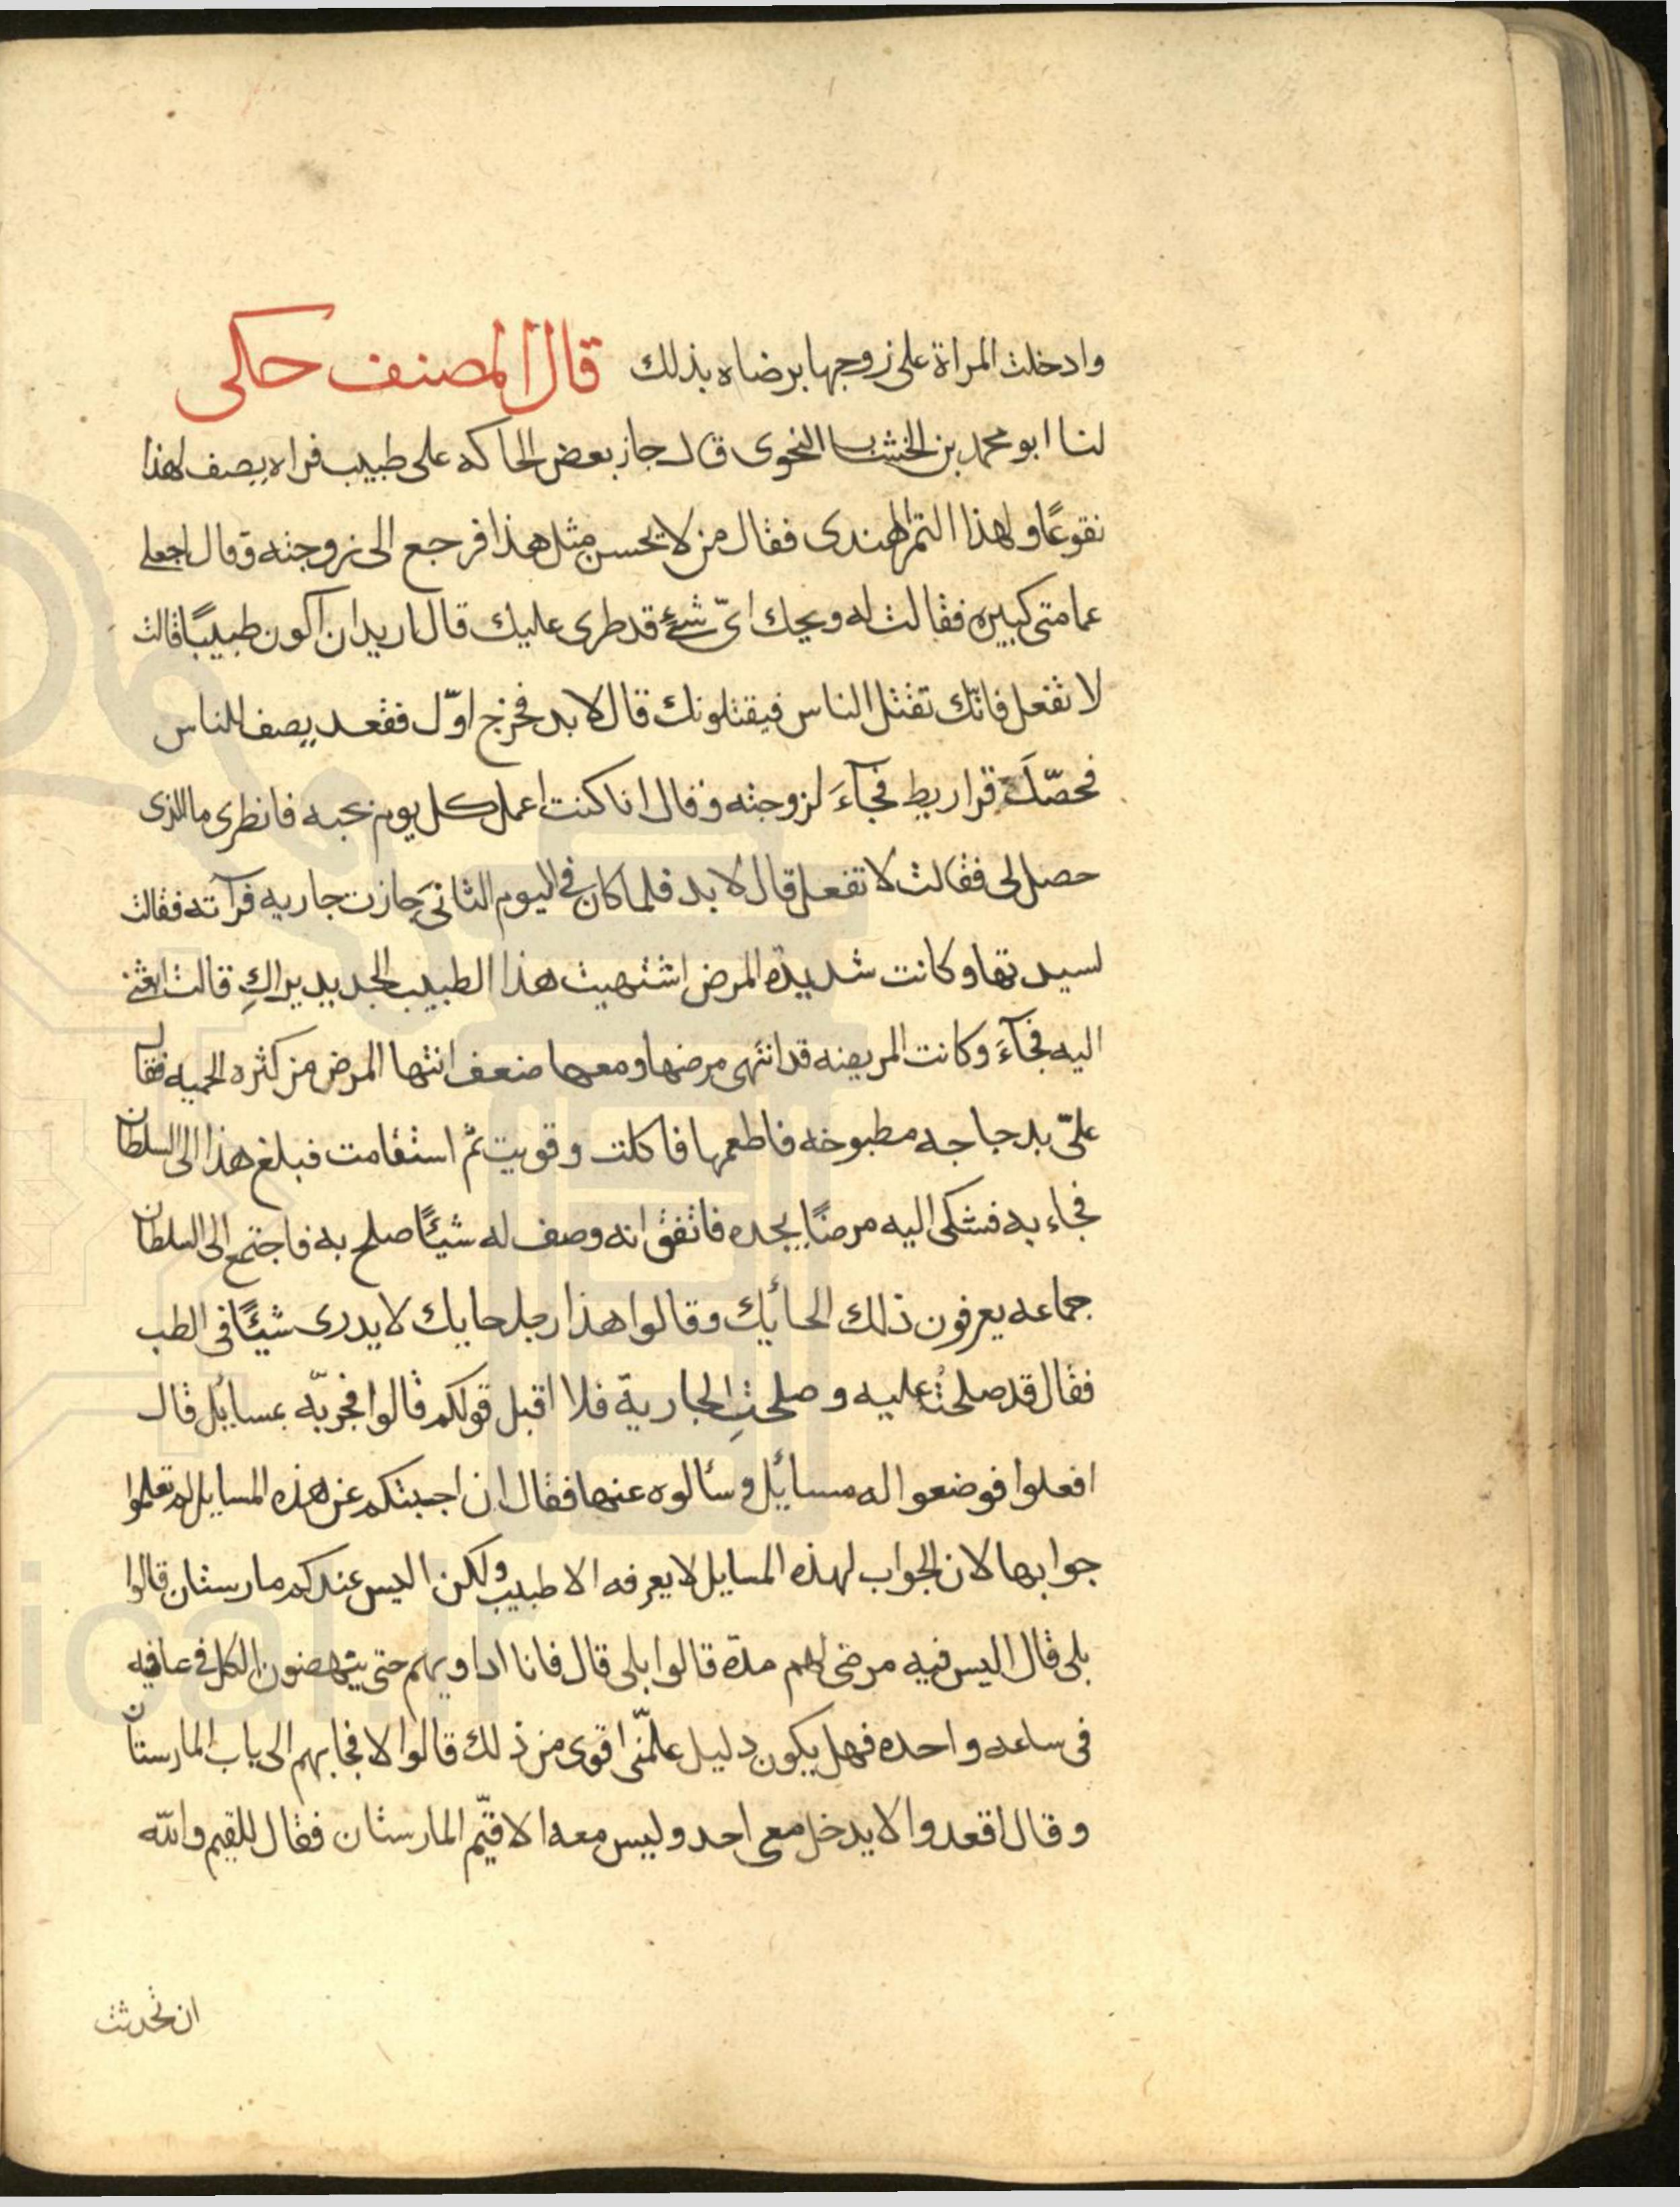 وادخلت المراة على زوجها برضاه بذلك قال المصنف حكى
لنا ابو محمد بن الخشاب النحوى قال جاز بعض الحاكه على طبيب فراه يصف لهذا
نقوعًا ولهذا التمر الهندى فقال من لا يحسن مثل هذا فرجع الى زوجته وقال اجعلى
عمامتى كبيره فقالت له ويحك اىّ شئ قد طرى عليك قال اريد ان اكون طبيبًا قالت
لا تفعل فانّك تقتل الناس فيقتلونك قال لا بد فخرج اوّل فقعد يصف للناس
فحصّل قراريط فجآءَ لزوجته وقال انا كنت اعمل كل يوم بحبه فانظرى ما الذى
حصل لى فقالت لا تفعل قال لا بد فلما كان فى اليوم الثانى جازت جاريه فرآته فقالت
لسيدتها وكانت شديدة المرض اشتهيت هذا الطبيب الجديد يراكِ قالت ابعثى
اليه فجآءَ وكانت المريضه قد انتهى مرضها ومعها ضعف انتها المرض من كثره الحميه فقال
علىّ بدجاجه مطبوخه فاطعمها فاكلت وقويت ثم استقامت فبلغ هذا الى السلطان
فجاء به فشكى اليه مرضًا يجده فاتفق انه وصف له شيئًا صلح به فاجتمع الى السلطان
جماعه يعرفون ذلك الحائك وقالوا هذا رجل حايك لا يدرى شيئًا فى الطب
فقال قد صلحتُ عليه وصلحتِ الجارية فلا اقبل قولكم قالوا فجربّه بمسايل قال
افعلوا فوضعوا له مسائل وسألوه عنها فقال ان اجبتكم عن هذه المسايل لم تعلموا
جوابها لان الجواب لهذه المسايل لا يعرفه الا طبيب ولكن اليس عندكم مارستان قالوا
بلى قال اليس فيه مرضى لهم مدة قالوا بلى قال فانا اداويهم حتى ينهضون الكل فى عافيه
فى ساعه واحده فهل يكون دليل علمّى اقوى من ذلك قالوا لا فجا بهم الى باب المارستان
وقال اقعدوا لا يدخل معى احد وليس معه الا قيّم المارستان فقال للقيم والله
ان تحدثت